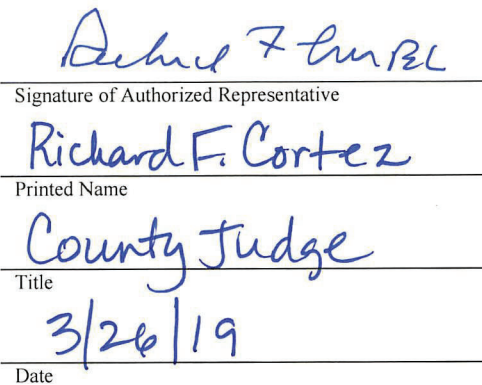 Signature of Authorized Representative
Richard F. Cortez
Printed Name
County Judge
Title
3/26/19
Date